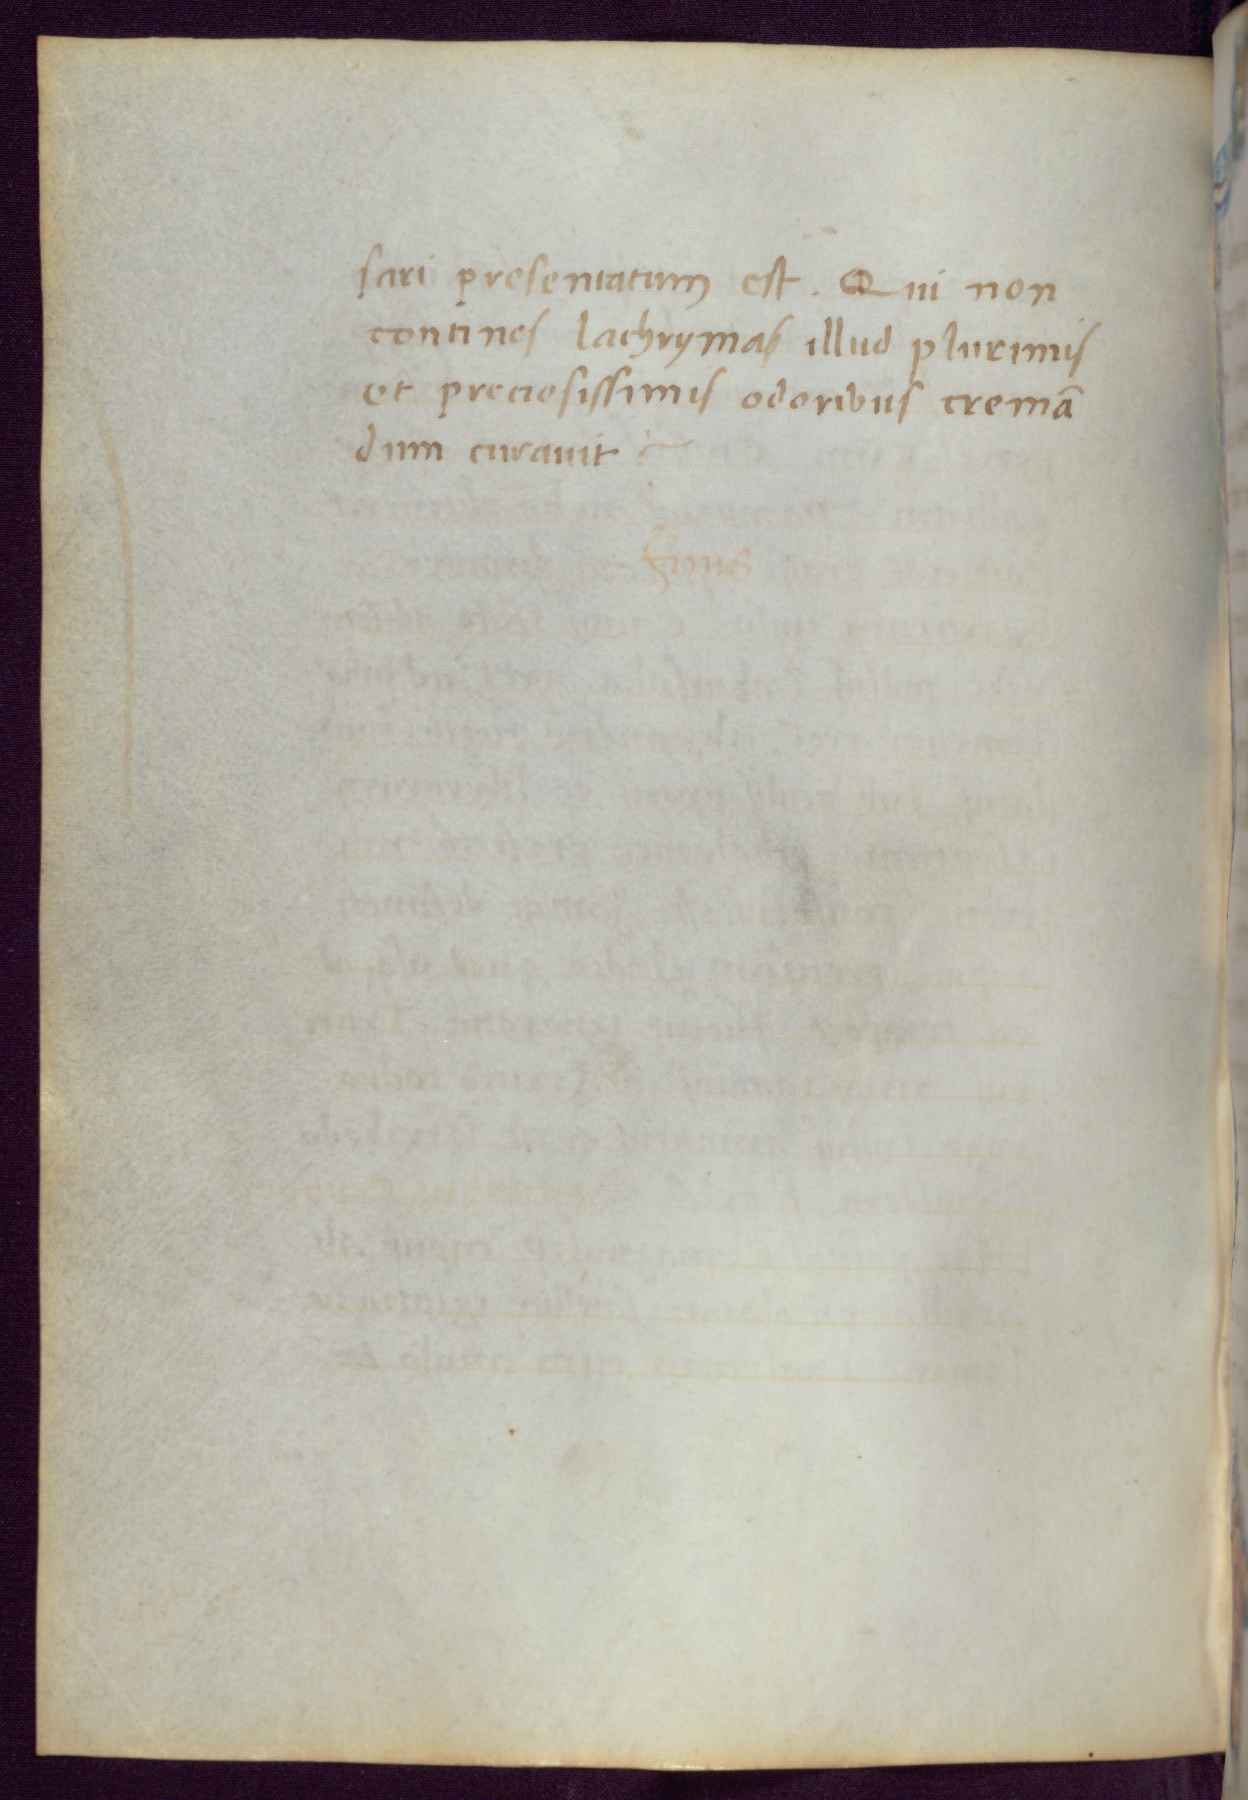 sari presentatum est. Qui non
contines lachrymas illud plurimis
et preciosissimis odoribus cremā
dum curavit
Finis